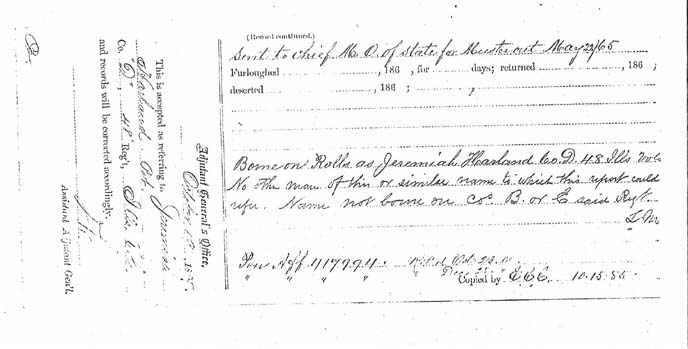 (Record continued.)
Sent to Chief M. O. of State for Muster out May 22/65
Furloughed , 186 , for days; returned , 186 ;
deserted , 186 ; ,
Borne on Rolls as Jeremiah Harland Co. D. 48 Ills Vols
No other man of this or similar name to which this report could
refer. Name not borne on Cos. B. or E said Regt.
417994
" " "
Copied by E.C.C. 10.15.85.
Adjutant General's Office,
October 188
This is accepted as referring to Jeremiah
Harland, Pvt.
Co. "D", 48 Reg't, Ills
and records will be corrected accordingly.
Assistant Adjutant Gen'l.